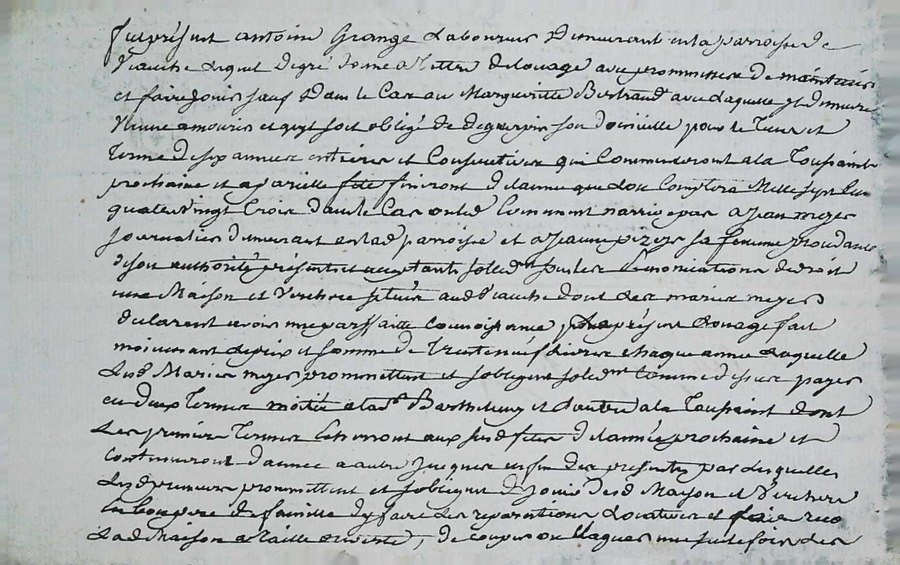 fut présent antoine Grange Laboureur Demeurant en la parroisse de
Viauche lequel de gré donne a Tittre de Louage avec prommesse de maintenir
et faire Jouir sauf Dans le Cas ou Margueritte Bertrand avec laquelle Il demeure
Vienne a mourir et qu'il soit obligé de deguerpir son domicille pour le Tems et
Terme de six années entières et Consecutives qui Commenceront a la Toussaint
prochaine et a pareille fête finiront de l'année que l'on Comptera Mille sept Cent
quatre Vingt Trois dans le Cas ou led Commant n'arrive pas a Jean meyer
Journalier demeurant en lad parroisse et a Jeanne sa femme procedante
de son authorité présents et acceptants solidt sous les Renonciations de droit
une Maison et Verchere située aud Viauche dont les mariés meyer
declarent avoir une parfaitte Connoissance, le présent Louage fait
moienant le prix et somme de Trente neuf Livres chaque année Laquelle
Lesd Mariés meyer prommettent et s'obligent solidmt Comme dessus payer
en deux Termes moitié a la St Barthelemy et l'autre a la Toussaint dont
Les premiers Termes Echerront aux susd fêtes de l'année prochaine et
Continueront d'année a autre Jusques en fin des présentes par Lesquelles
Lesd preneurs prommettent et s'obligent de Jouir desd Maison et Verchere
En bon pere de famille d'y faire Les reparations Locatives et
Lad Maison de Taille, de couper une seule fois des